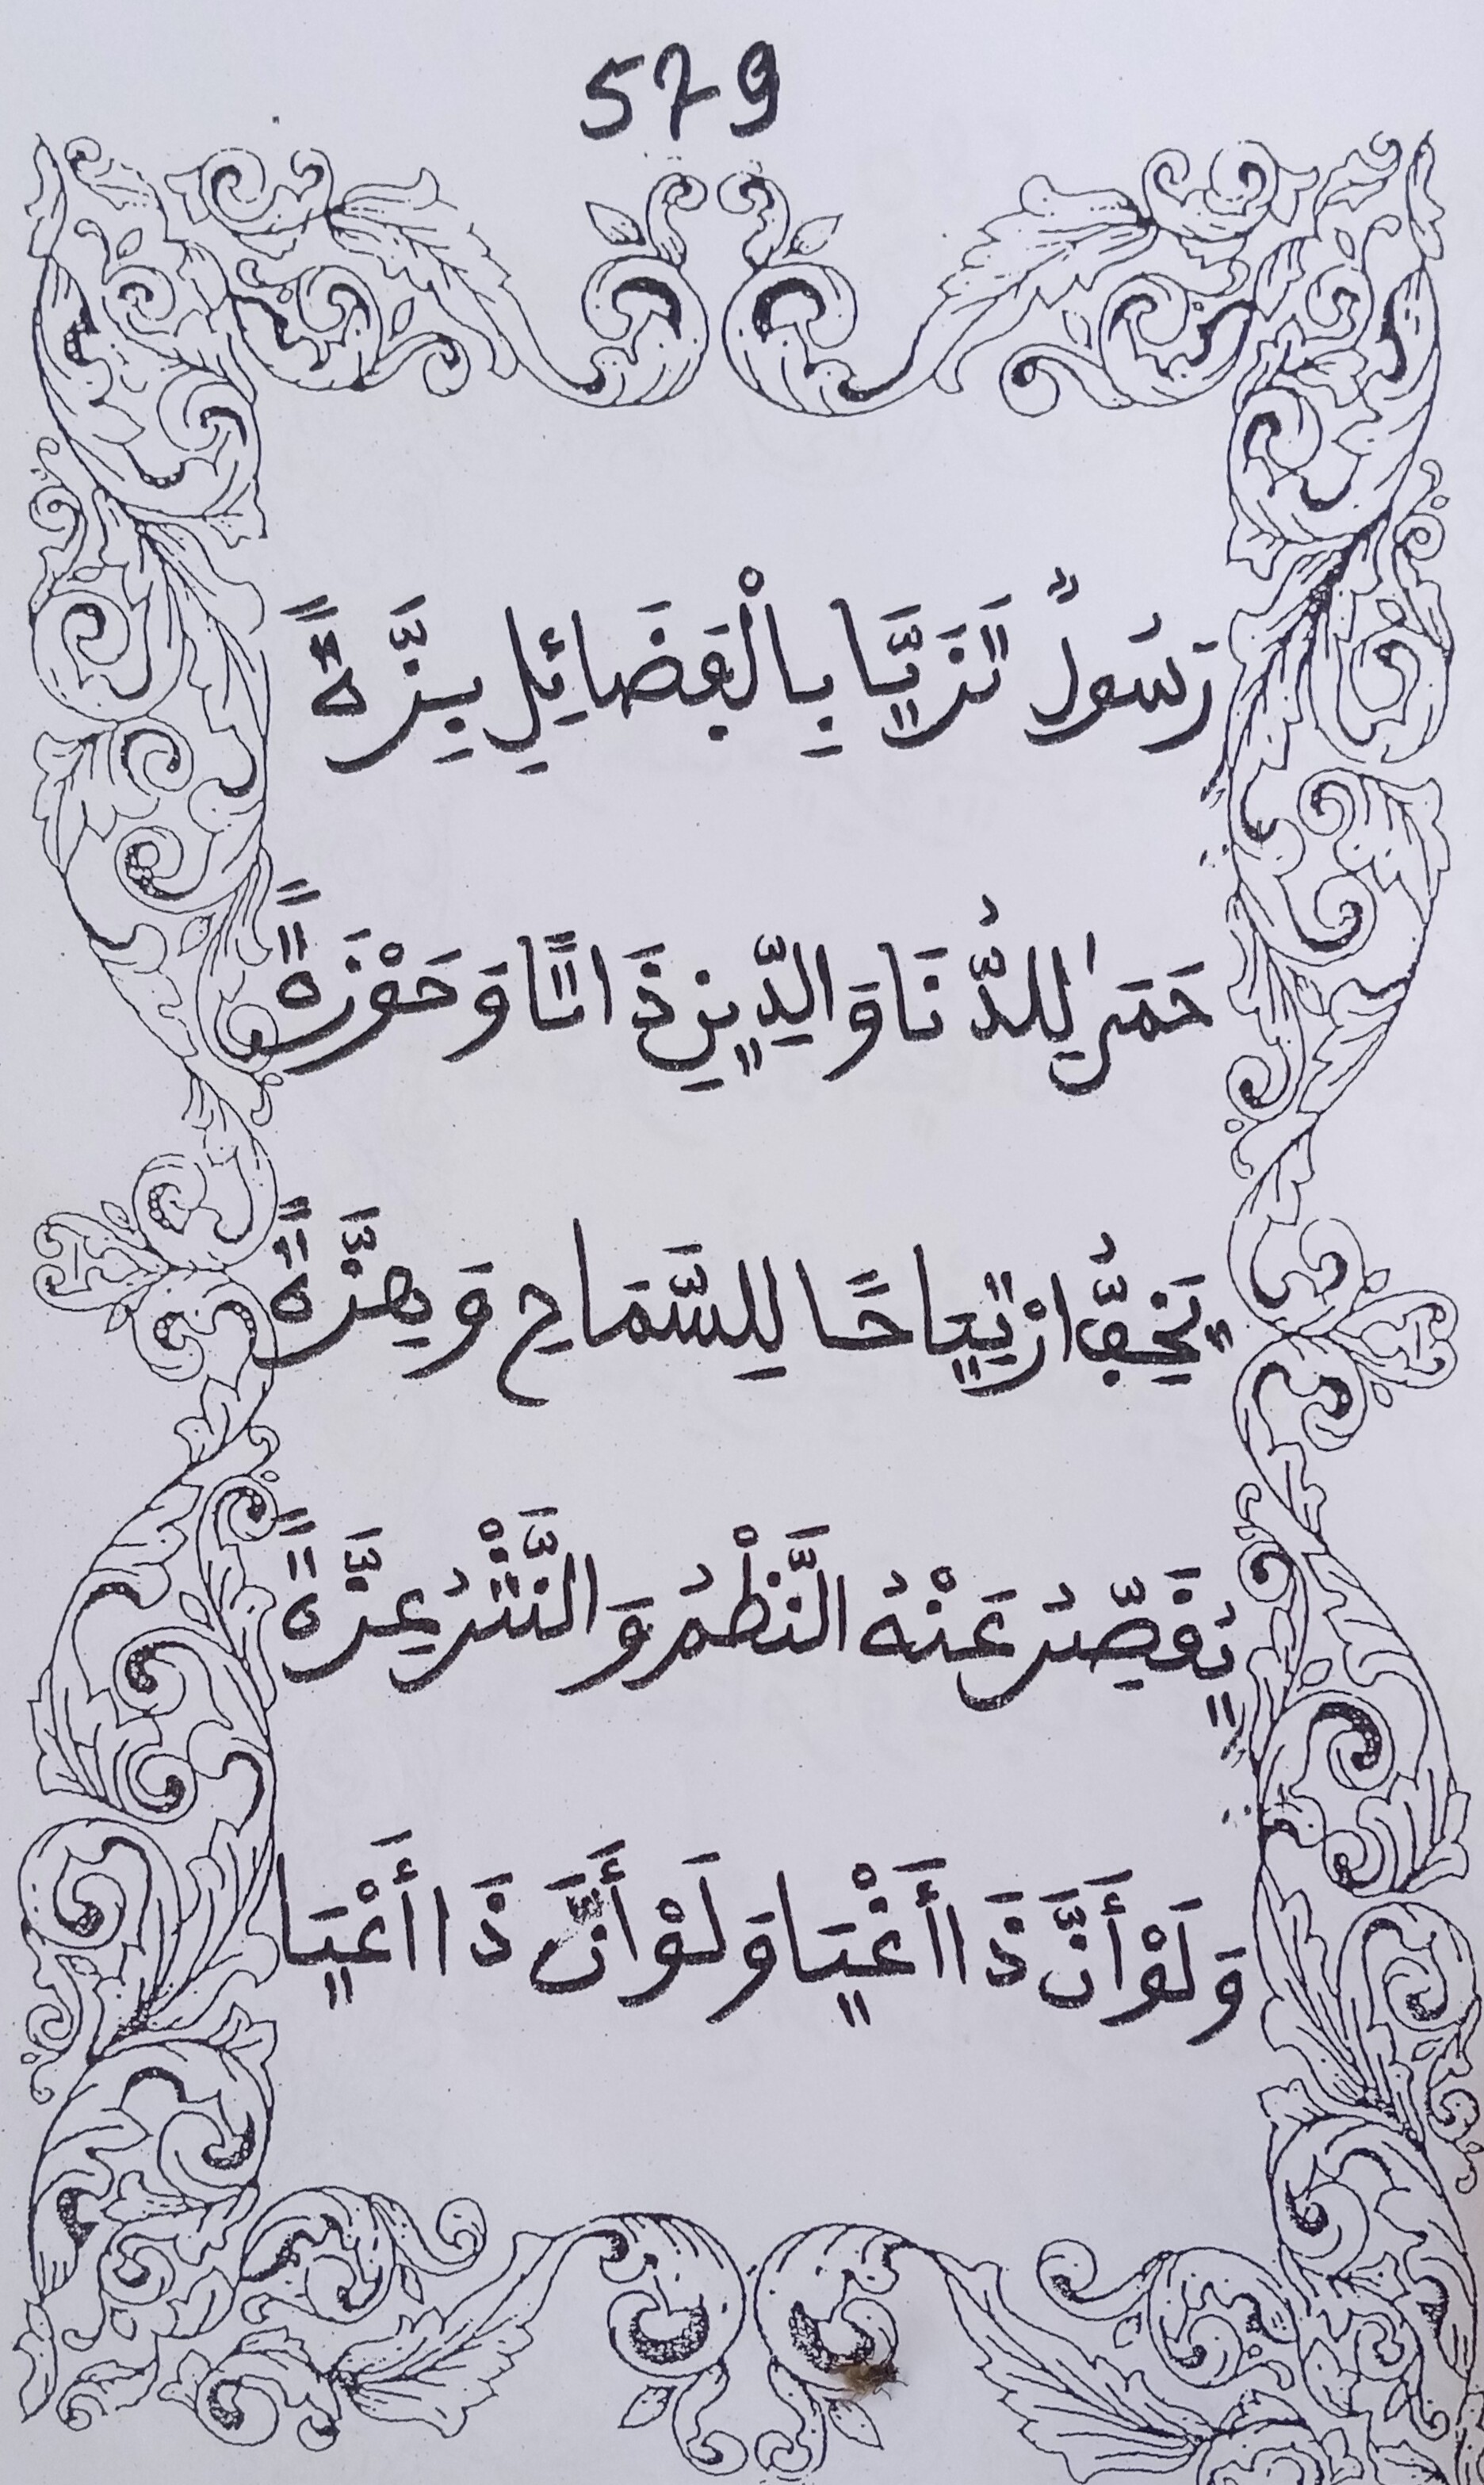 579
رَسُولٌ تَزَيَّا بِالْفَضَائِلِ بِزَّةً
حَمَىٰ لِلدُّنَا وَالدِّينِ ذَاتًا وَحَوْزَةً
يَخِفُّ ارْتِيَاحًا لِلسَّمَاحِ وَهِزَّةً
يُقَصِّرُ عَنْهُ النَّظْمُ وَالنَّثْرُ عِزَّةً
وَلَوْ أَنَّ ذَا أَغْيَا وَلَوْ أَنَّ ذَا أَعْيَا